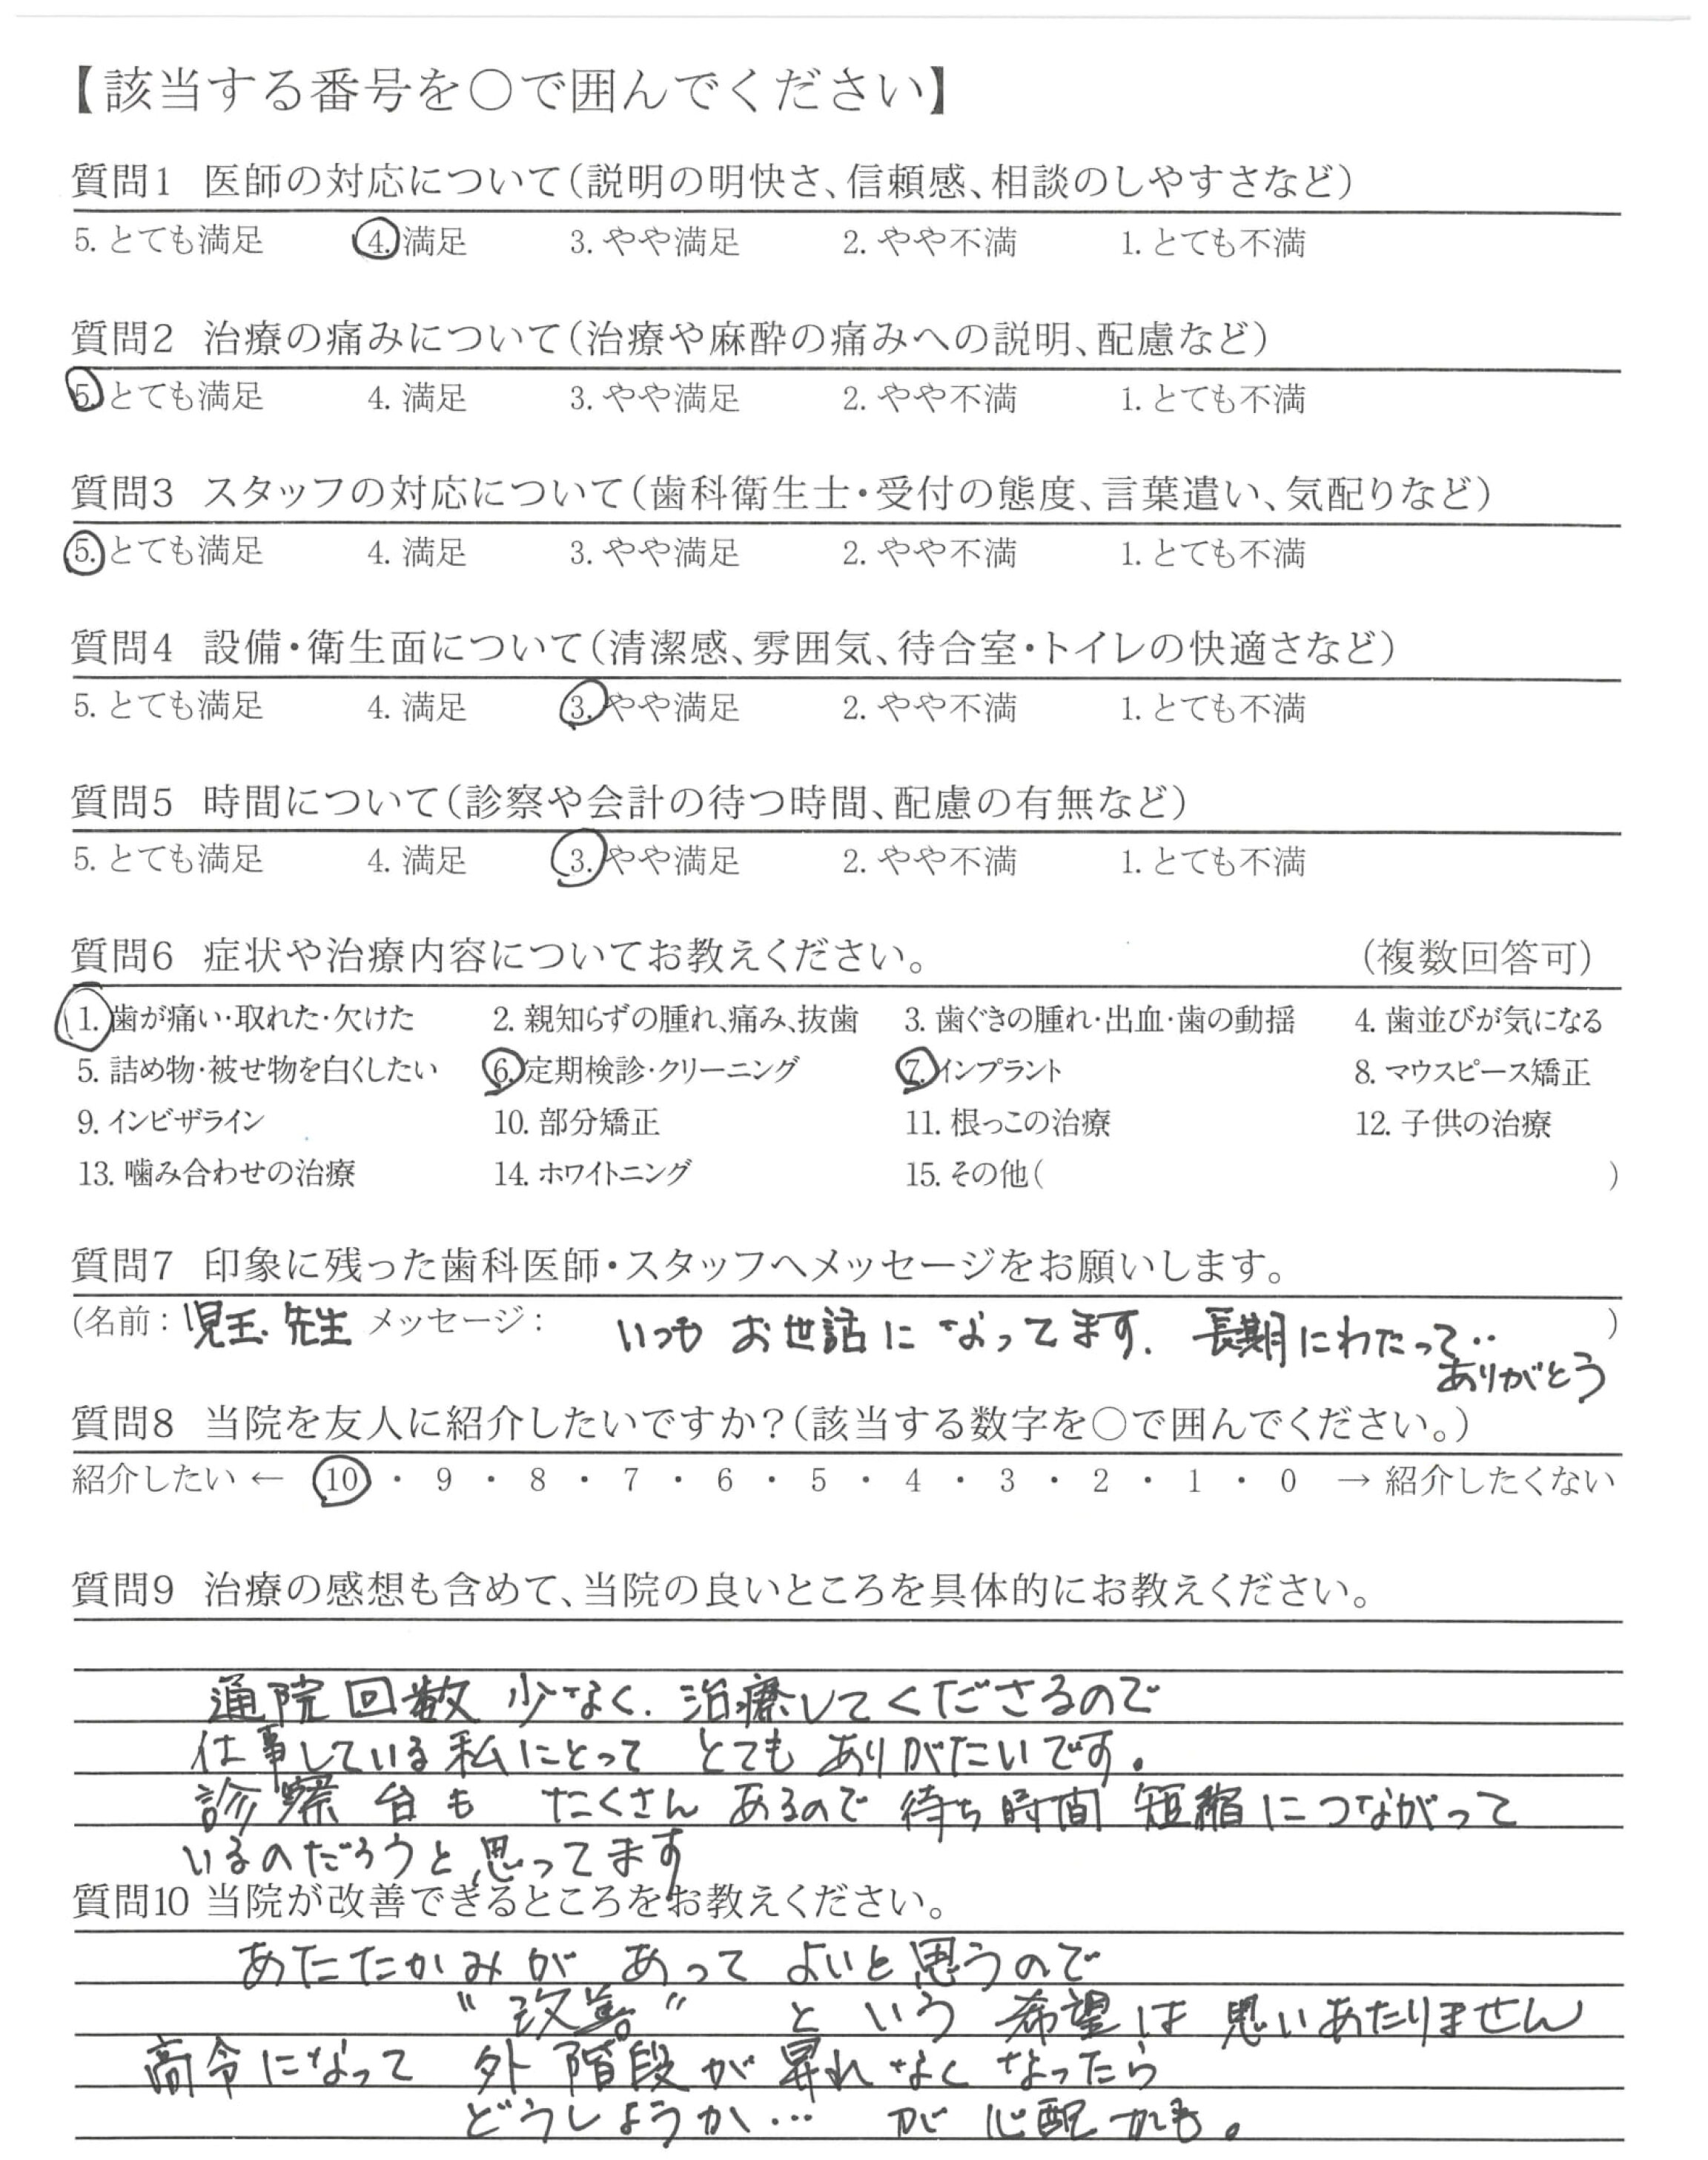 【該当する番号を○で囲んでください】
質問1 医師の対応について(説明の明快さ、信頼感、相談のしやすさなど)
5. とても満足 4. 満足 3. やや満足 2. やや不満 1. とても不満
質問2 治療の痛みについて(治療や麻酔の痛みへの説明、配慮など)
5. とても満足 4. 満足 3. やや満足 2. やや不満 1. とても不満
質問3 スタッフの対応について(歯科衛生士・受付の態度、言葉遣い、気配りなど)
5. とても満足 4. 満足 3. やや満足 2. やや不満 1. とても不満
質問4 設備・衛生面について(清潔感、雰囲気、待合室・トイレの快適さなど)
5. とても満足 4. 満足 3. やや満足 2. やや不満 1. とても不満
質問5 時間について(診察や会計の待つ時間、配慮の有無など)
5. とても満足 4. 満足 3. やや満足 2. やや不満 1. とても不満
質問6 症状や治療内容についてお教えください。 (複数回答可)
1. 歯が痛い・取れた・欠けた 2. 親知らずの腫れ、痛み、抜歯 3. 歯ぐきの腫れ・出血・歯の動揺 4. 歯並びが気になる
5. 詰め物・被せ物を白くしたい 6. 定期検診・クリーニング 7. インプラント 8. マウスピース矯正
9. インビザライン 10. 部分矯正 11. 根っこの治療 12. 子供の治療
13. 噛み合わせの治療 14. ホワイトニング 15. その他( )
質問7 印象に残った歯科医師・スタッフへメッセージをお願いします。
(名前: 児玉. 先生 メッセージ: いつも お世話に なってます. 長期にわたって‥ )
ありがとう
質問8 当院を友人に紹介したいですか?(該当する数字を○で囲んでください。)
紹介したい ← 10 ・ 9 ・ 8 ・ 7 ・ 6 ・ 5 ・ 4 ・ 3 ・ 2 ・ 1 ・ 0 → 紹介したくない
質問9 治療の感想も含めて、当院の良いところを具体的にお教えください。
通院回数 少なく. 治療してくださるので
仕事している私にとって とても ありがたいです。
診察台も たくさん あるので 待ち時間 短縮につながって
いるのだろうと思ってます
質問10 当院が改善できるところをお教えください。
あたたかみが あって よいと思うので
"改善" という 希望は 思いあたりません
高令になって 外階段が昇れなく なったら
どうしようか… が心配かも。